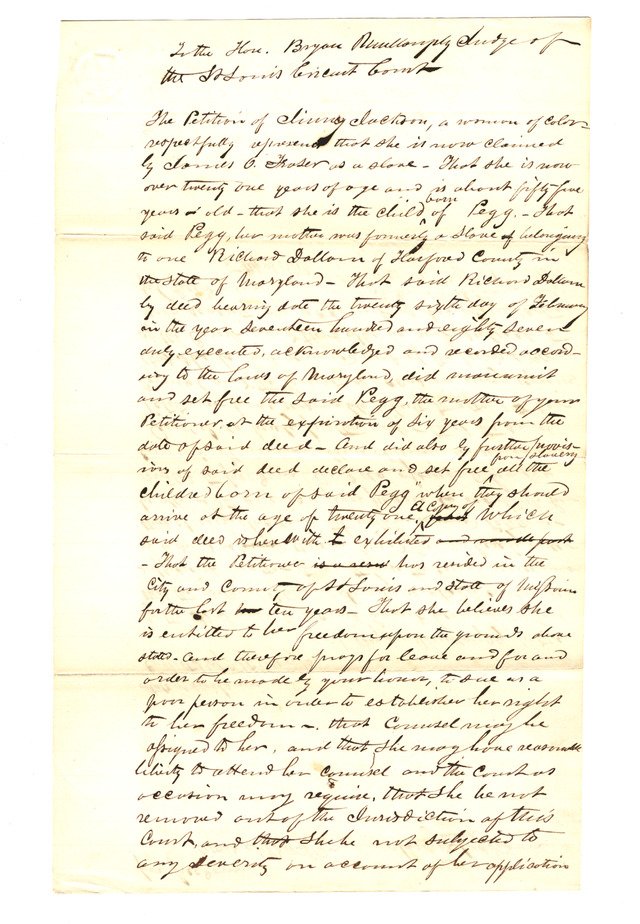 To the Hon. Bryan Mullanphy Judge of
the St Louis Circuit Court
The Petition of Jinny Jackson, a woman of color
respectfully represents that she is now claimed
by James O. Fraser as a slave - That she is now
over twenty one years of age and is about fifty five
years old - that she is the child born of Pegg. - That
said Pegg, her mother, was formerly a slave of belonging
to one Richard Dallam of Harford County in
the State of Maryland - That said Richard Dallam
by deed bearing date the twenty sixth day of February
in the year seventeen hundred and eighty seven
duly executed, acknowledged and recorded accord-
ing to the laws of Maryland, did manumit
and set free the said Pegg, the mother of your
Petitioner, at the expiration of six years from the
date of said deed - And did also by further provis-
ions of said deed declare and set free from slavery all the
children born of said Pegg "when they should
arrive at the age of twenty one, A Copy of which
said deed is herewith exhibited and made part
- That the Petitioner is a resi has resided in the
City and County of St Louis and State of Missouri
for the last ten years - That she believes she
is entitled to her freedom upon the grounds above
stated - And therefore prays for leave and for and
order to be made by your honor, to sue as a
poor person in order to establish her right
to her freedom -. that Counsel may be
assigned to her, and that she may have reasonable
liberty to attend her counsel and the Court as
occasion may require, that She be not
removed out of the Jurisdiction of this
Court, and that She be not subjected to
any severity on account of her application